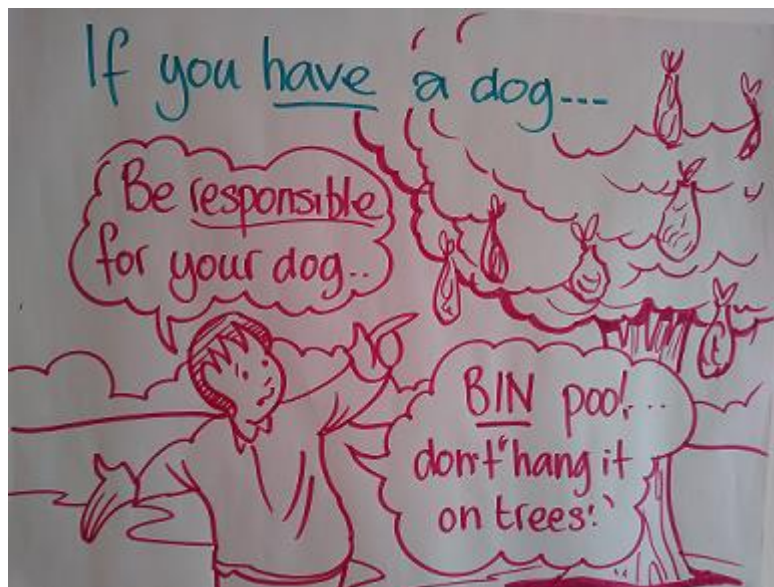 If you have a dog...
Be responsible
for your dog..
BIN poo!...
don't "hang it
on trees!"